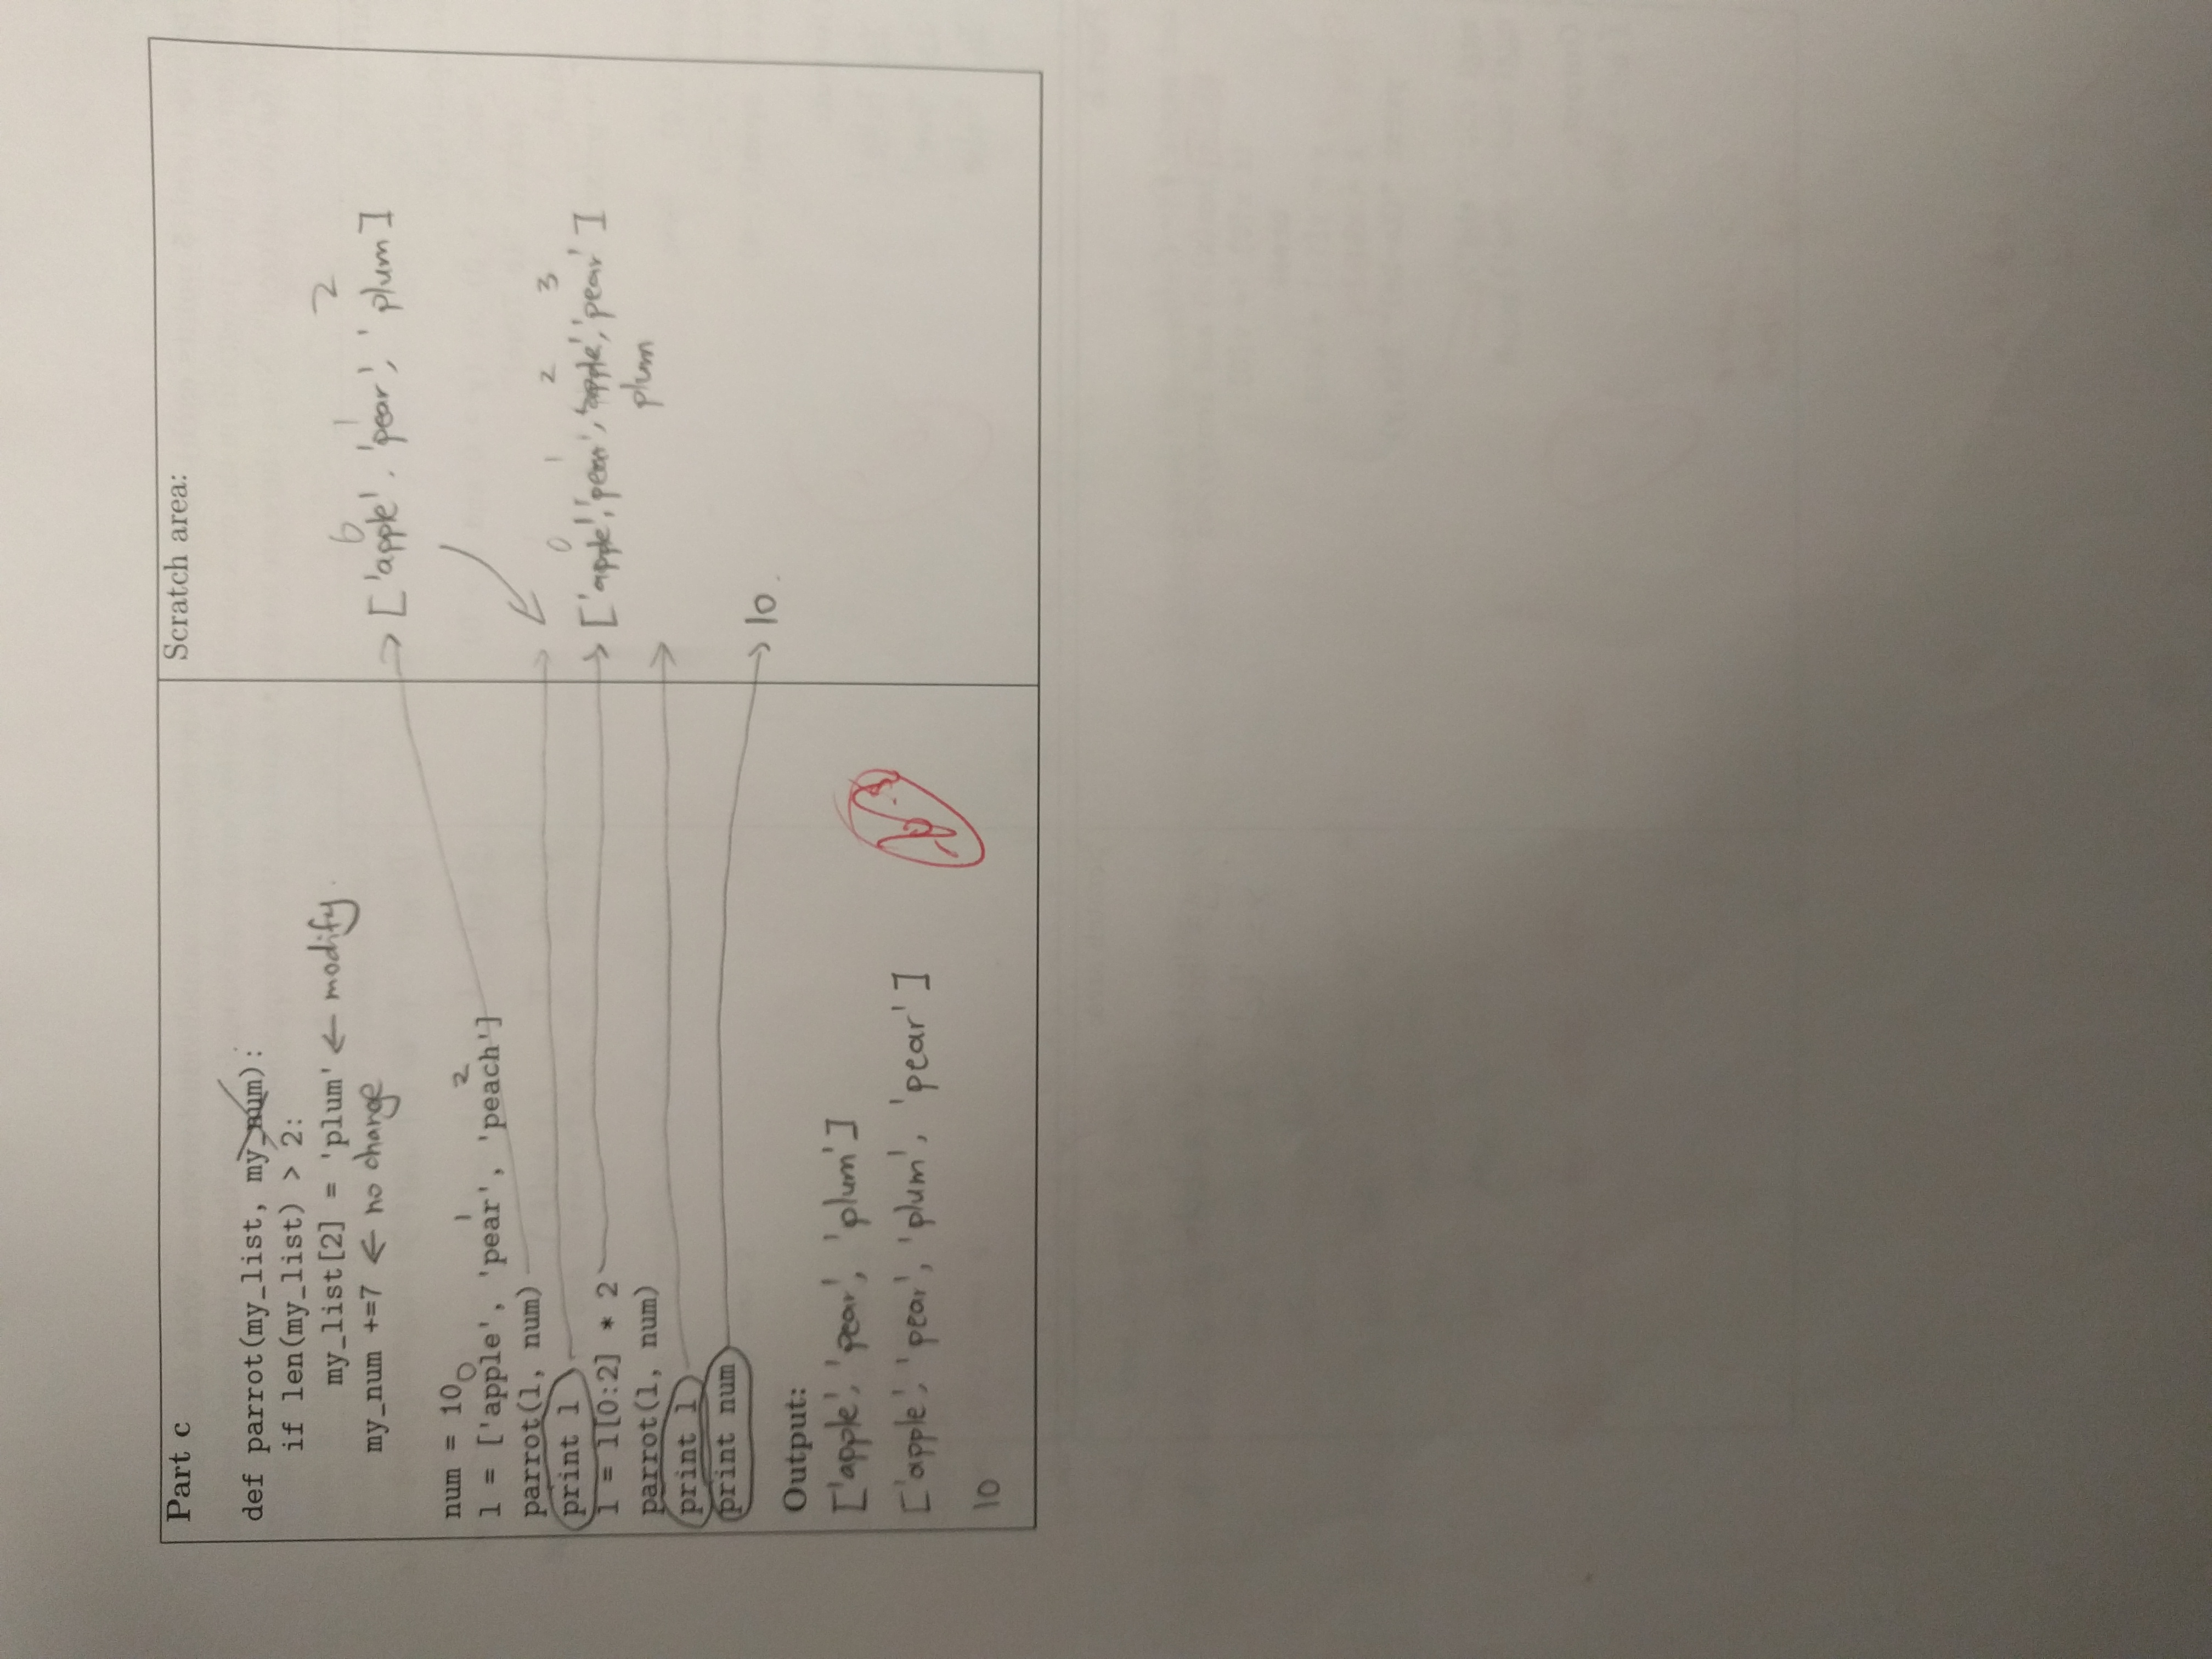 Part c
def parrot(my_list, my_num):
if len(my_list) > 2:
my_list[2] = 'plum' ← modify.
my_num +=7 ← no change
num = 10
0 1 2
l = ['apple', 'pear', 'peach']
parrot(l, num)
print l
l = l[0:2] * 2
parrot(l, num)
print l
print num
Output:
['apple', 'pear', 'plum']
['apple', 'pear', 'plum', 'pear']
10
Scratch area:
0 1 2
['apple', 'pear', 'plum]
0 1 2 3
['apple', 'pear', 'apple', 'pear']
plum
10.